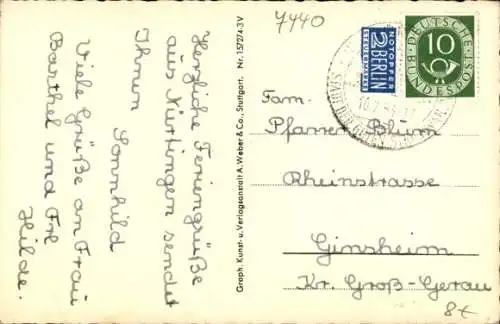 7440
Herzliche Feriengrüße
aus Nürtingen sendet
Ihnen
Sonnhild
Viele Grüße an Frau
Barthel und Frl
Hilde.
Graph. Kunst- u. Verlagsanstalt A. Weber & Co., Stuttgart. Nr. 15/274:3V
NOTOPFER
2 BERLIN
STEUERMARKE
DEUTSCHE
10
BUNDESPOST
Fam.
Pfarrer Blum
Rheinstrasse
Ginsheim
Kr. Groß-Gerau